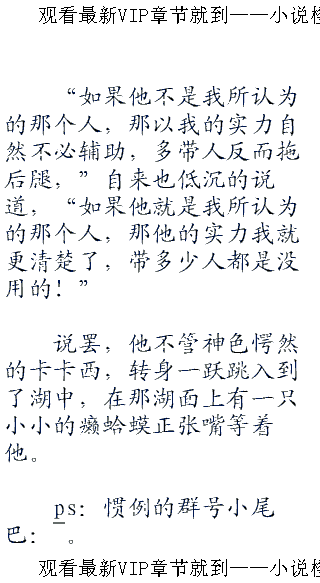 观看最新VIP章节就到——小说检
“如果他不是我所认为
的那个人，那以我的实力自
然不必辅助，多带人反而拖
后腿，”自来也低沉的说
道，“如果他就是我所认为
的那个人，那他的实力我就
更清楚了，带多少人都是没
用的！”
说罢，他不管神色愕然
的卡卡西，转身一跃跳入到
了湖中，在那湖面上有一只
小小的癞蛤蟆正张嘴等着
他。
ps：惯例的群号小尾
巴：。
观看最新VIP章节就到——小说